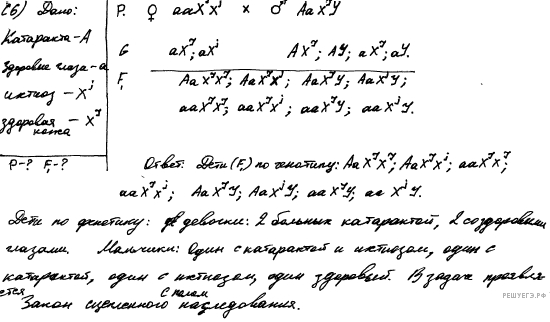 С6) Дано:
Катаракта – А
Здоровые глаза – а
ихтиоз – Xʲ
здоровая кожа – Xᴶ
P-? F₁-?
P. ♀ aaXᴶXʲ × ♂ AaXᴶY
G aXᴶ; aXʲ AXᴶ; AY; aXᴶ; aY.
F₁ AaXᴶXᴶ; AaXᴶXʲ; AaXᴶY; AaXʲY;
aaXᴶXᴶ; aaXᴶXʲ; aaXᴶY; aaXʲY.
Ответ: Дети (F₁) по генотипу: AaXᴶXᴶ; AaXᴶXʲ; aaXᴶXᴶ;
aaXᴶXʲ; AaXᴶY; AaXʲY; aaXᴶY; aaXʲY.
Дети по фенотипу: девочки: 2 больных катарактой, 2 со здоровыми
глазами. Мальчики: Один с катарактой и ихтиозом, один с
катарактой, один с ихтиозом, один здоровый. В задаче проявля
ется Закон сцепленного с полом наследования.
РЕШУЕГЭ.РФ